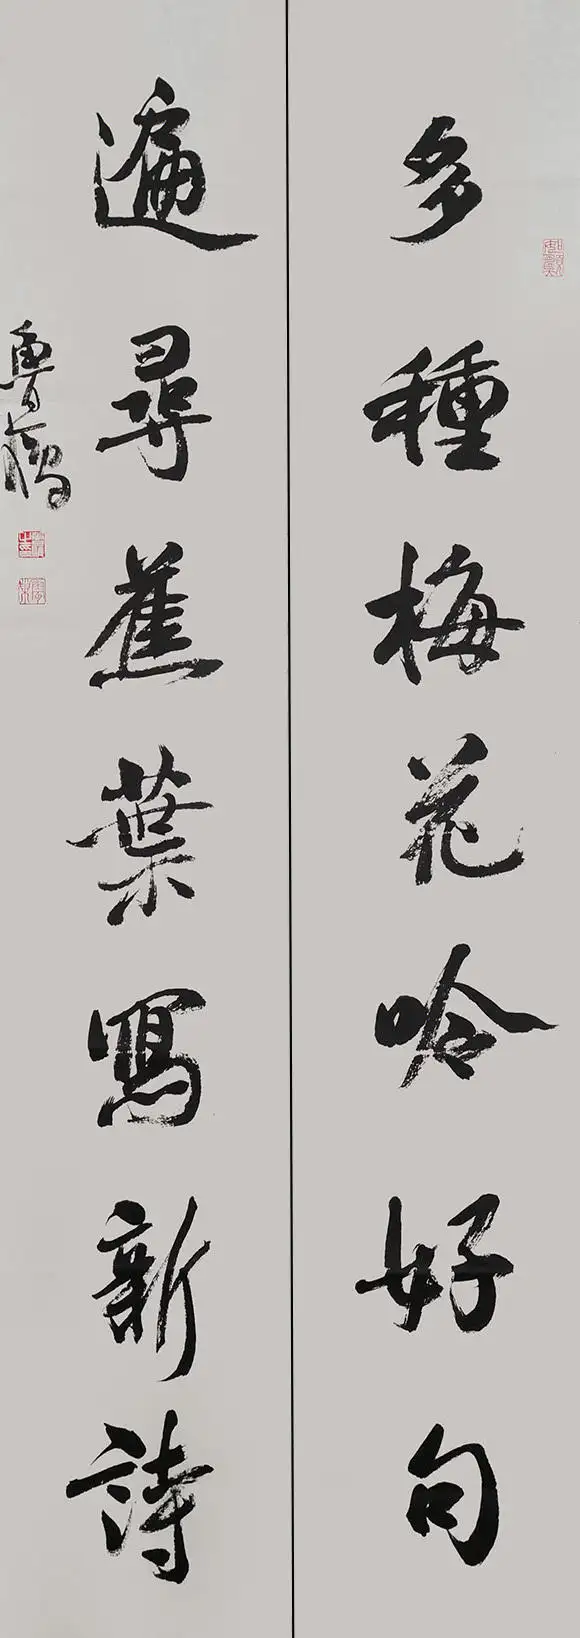 多種梅花吟好句
遍尋蕉葉寫新詩